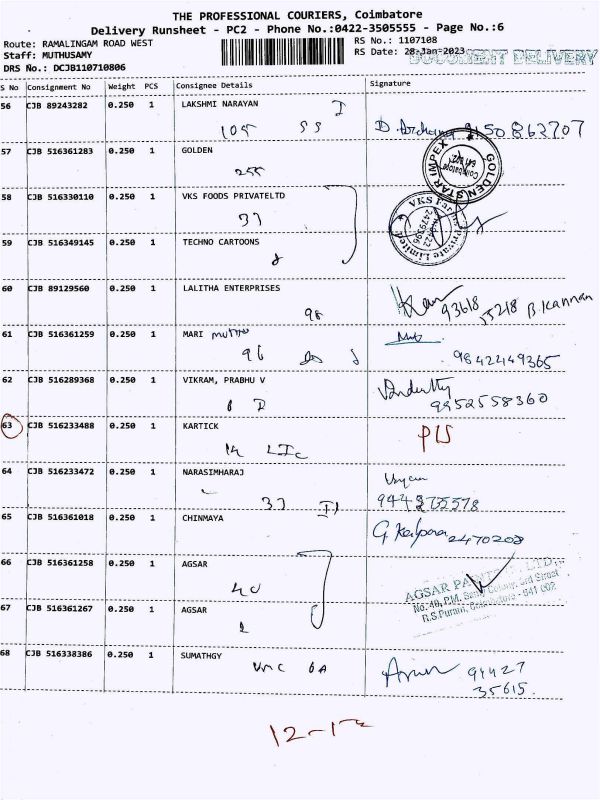 THE PROFESSIONAL COURIERS, Coimbatore
Delivery Runsheet - PC2 - Phone No.:0422-3505555 - Page No.:6
Route: RAMALINGAM ROAD WEST
RS No.: 1107108
Staff: MUTHUSAMY
RS Date: 28-Jan-2023
DOCUMENT DELIVERY
DRS No.: DCJB110710806
S No Consignment No Weight PCS Consignee Details Signature
56 CJB 89243282 0.250 1 LAKSHMI NARAYAN
105 SS 9150862707
57 CJB 516361283 0.250 1 GOLDEN
GOLDEN STAR IMPEX Coimbatore
255
58 CJB 516330110 0.250 1 VKS FOODS PRIVATELTD
37
VKS Private Limited
59 CJB 516349145 0.250 1 TECHNO CARTOONS
60 CJB 89129560 0.250 1 LALITHA ENTERPRISES
98 93618 55218 B.Kannan
61 CJB 516361259 0.250 1 MARI MUTHU
96 9842449365
62 CJB 516289368 0.250 1 VIKRAM, PRABHU V
9952558360
63 CJB 516233488 0.250 1 KARTICK
LIC
64 CJB 516233472 0.250 1 NARASIMHARAJ
37
65 CJB 516361018 0.250 1 CHINMAYA
2470208
66 CJB 516361258 0.250 1 AGSAR
40
AGSAR PAINTS LTD.,
No. 40, P.M. Samy Colony, 3rd Street
R.S.Puram, Coimbatore - 641 002
67 CJB 516361267 0.250 1 AGSAR
68 CJB 516338386 0.250 1 SUMATHGY
6A 94427
35615.